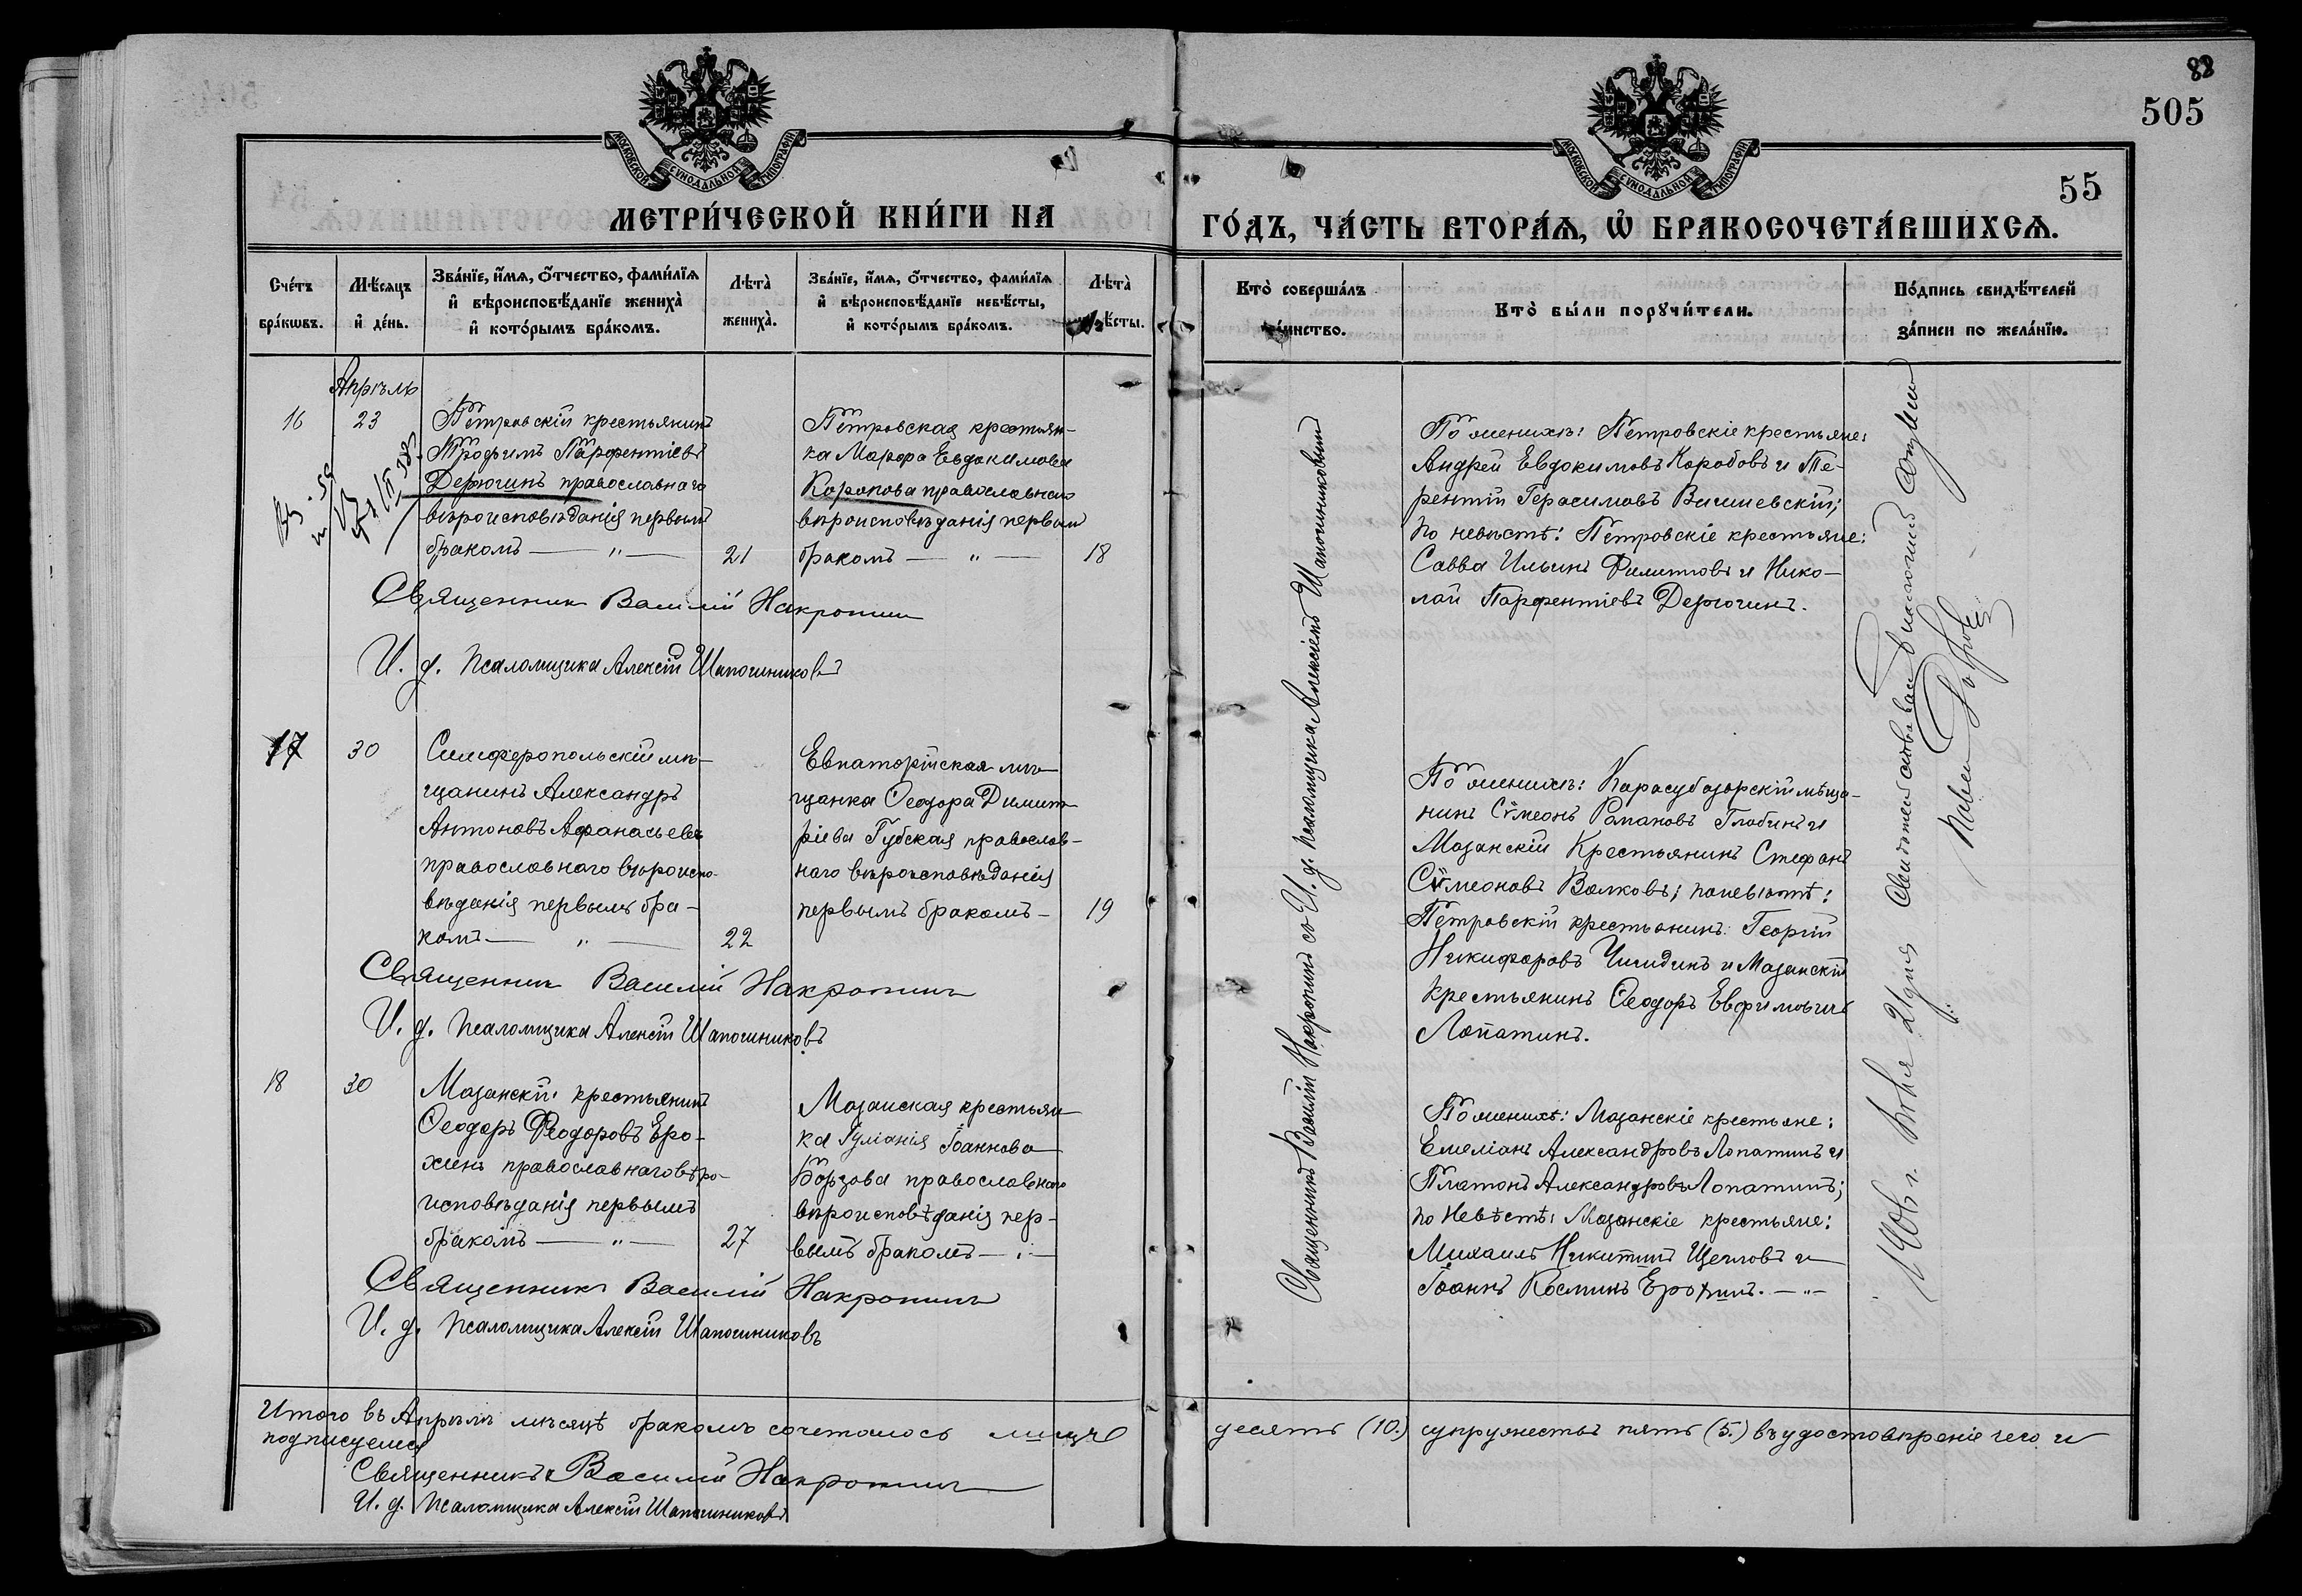 88
505
55
МОСКОВСКОЙ СУНОДАЛЬНОЙ ТИПОГРАФІИ
МОСКОВСКОЙ СУНОДАЛЬНОЙ ТИПОГРАФІИ
МЕТРИ́ЧЕСКОЙ КНИ́ГИ НА
ГО́ДЪ, ЧА́СТЬ ВТОРА́Ѧ, Ѽ БРАКОСОЧЕТА́ВШИХСѦ.
Сче́тъ бра́кωвъ.
Мѣ́сяцъ и҆ де́нь.
Зва́нїе, и҆́мѧ, ѻ҆́тчество, фами́лїѧ
и҆ вѣроисповѣ́данїе жениха̀
и҆ кото́рымъ бра́комъ.
Лѣта̀ жениха̀.
Зва́нїе, и҆́мѧ, ѻ҆́тчество, фами́лїѧ
и҆ вѣроисповѣ́данїе невѣ́сты,
и҆ кото́рымъ бра́комъ.
Лѣта̀
Кто̀ соверша́лъ
Кто̀ бы́ли порꙋчи́тели.
По́дпись свидѣ́телей
за́писи по жела́нїю.
Апрѣль
16
23
Петровскій крестьянинъ
Трофимъ Парфентіевъ
Дерюгинъ православнаго
вѣроисповѣданія первымъ
бракомъ — „ —
21
Петровская крестьян-
ка Марфа Евдокимова
Коропова православнаго
вѣроисповѣданія первымъ
бракомъ — „ —
18
По женихѣ: Петровскіе крестьяне:
Андрей Евдокимовъ Коробовъ и Те-
рентій Герасимовъ Вишневскій;
по невѣстѣ: Петровскіе крестьяне:
Савва Ильинъ Филиповъ и Нико-
лай Парфентіевъ Дерюгинъ.
Священникъ Василій Накропинъ
И. д. псаломщика Алексій Шапошниковъ
17
30
Симферопольскій мѣ-
щанинъ Александръ
Антоновъ Афанасьевъ
православнаго вѣроиспо-
вѣданія первымъ бра-
комъ — „ —
22
Евпаторійская мѣ-
щанка Ѳеодора Димит-
ріева Губская православ-
наго вѣроисповѣданія
первымъ бракомъ —
19
По женихѣ: Карасубазарскій мѣща-
нинъ Сѵмеонъ Романовъ Глобинъ и
Мазанскій Крестьянинъ Стефанъ
Сѵмеоновъ Волковъ; по невѣстѣ:
Петровскій крестьянинъ Георгій
Никифоровъ Чигидинъ и Мазанскій
крестьянинъ Ѳеодоръ Евфимовичъ
Лопатинъ.
Священникъ Василій Накропинъ
И. д. псаломщика Алексій Шапошниковъ
18
30
Мазанскій крестьянинъ
Ѳеодоръ Ѳеодоровъ Еро-
хинъ православнаго вѣро-
исповѣданія первымъ
бракомъ — „ —
27
Мазанская крестьян-
ка Іуліанія Іоаннова
Борзова православнаго
вѣроисповѣданія пер-
вымъ бракомъ —
По женихѣ: Мазанскіе крестьяне:
Емеліанъ Александровъ Лопатинъ и
Платонъ Александровъ Лопатинъ;
по невѣстѣ: Мазанскіе крестьяне:
Михаилъ Никитинъ Щегловъ и
Іоаннъ Косминъ Ерохинъ. — „ —
Священникъ Василій Накропинъ
И. д. псаломщика Алексій Шапошниковъ
Священникъ Василій Накропинъ со И. д. псаломщика Алексіемъ Шапошниковымъ
Итого въ Апрѣлѣ мѣсяцѣ бракомъ сочеталось лицъ десять (10.) супружествъ пять (5.) въ удостовѣреніе чего и
подписуемся
Священникъ Василій Накропинъ
И. д. псаломщика Алексій Шапошниковъ